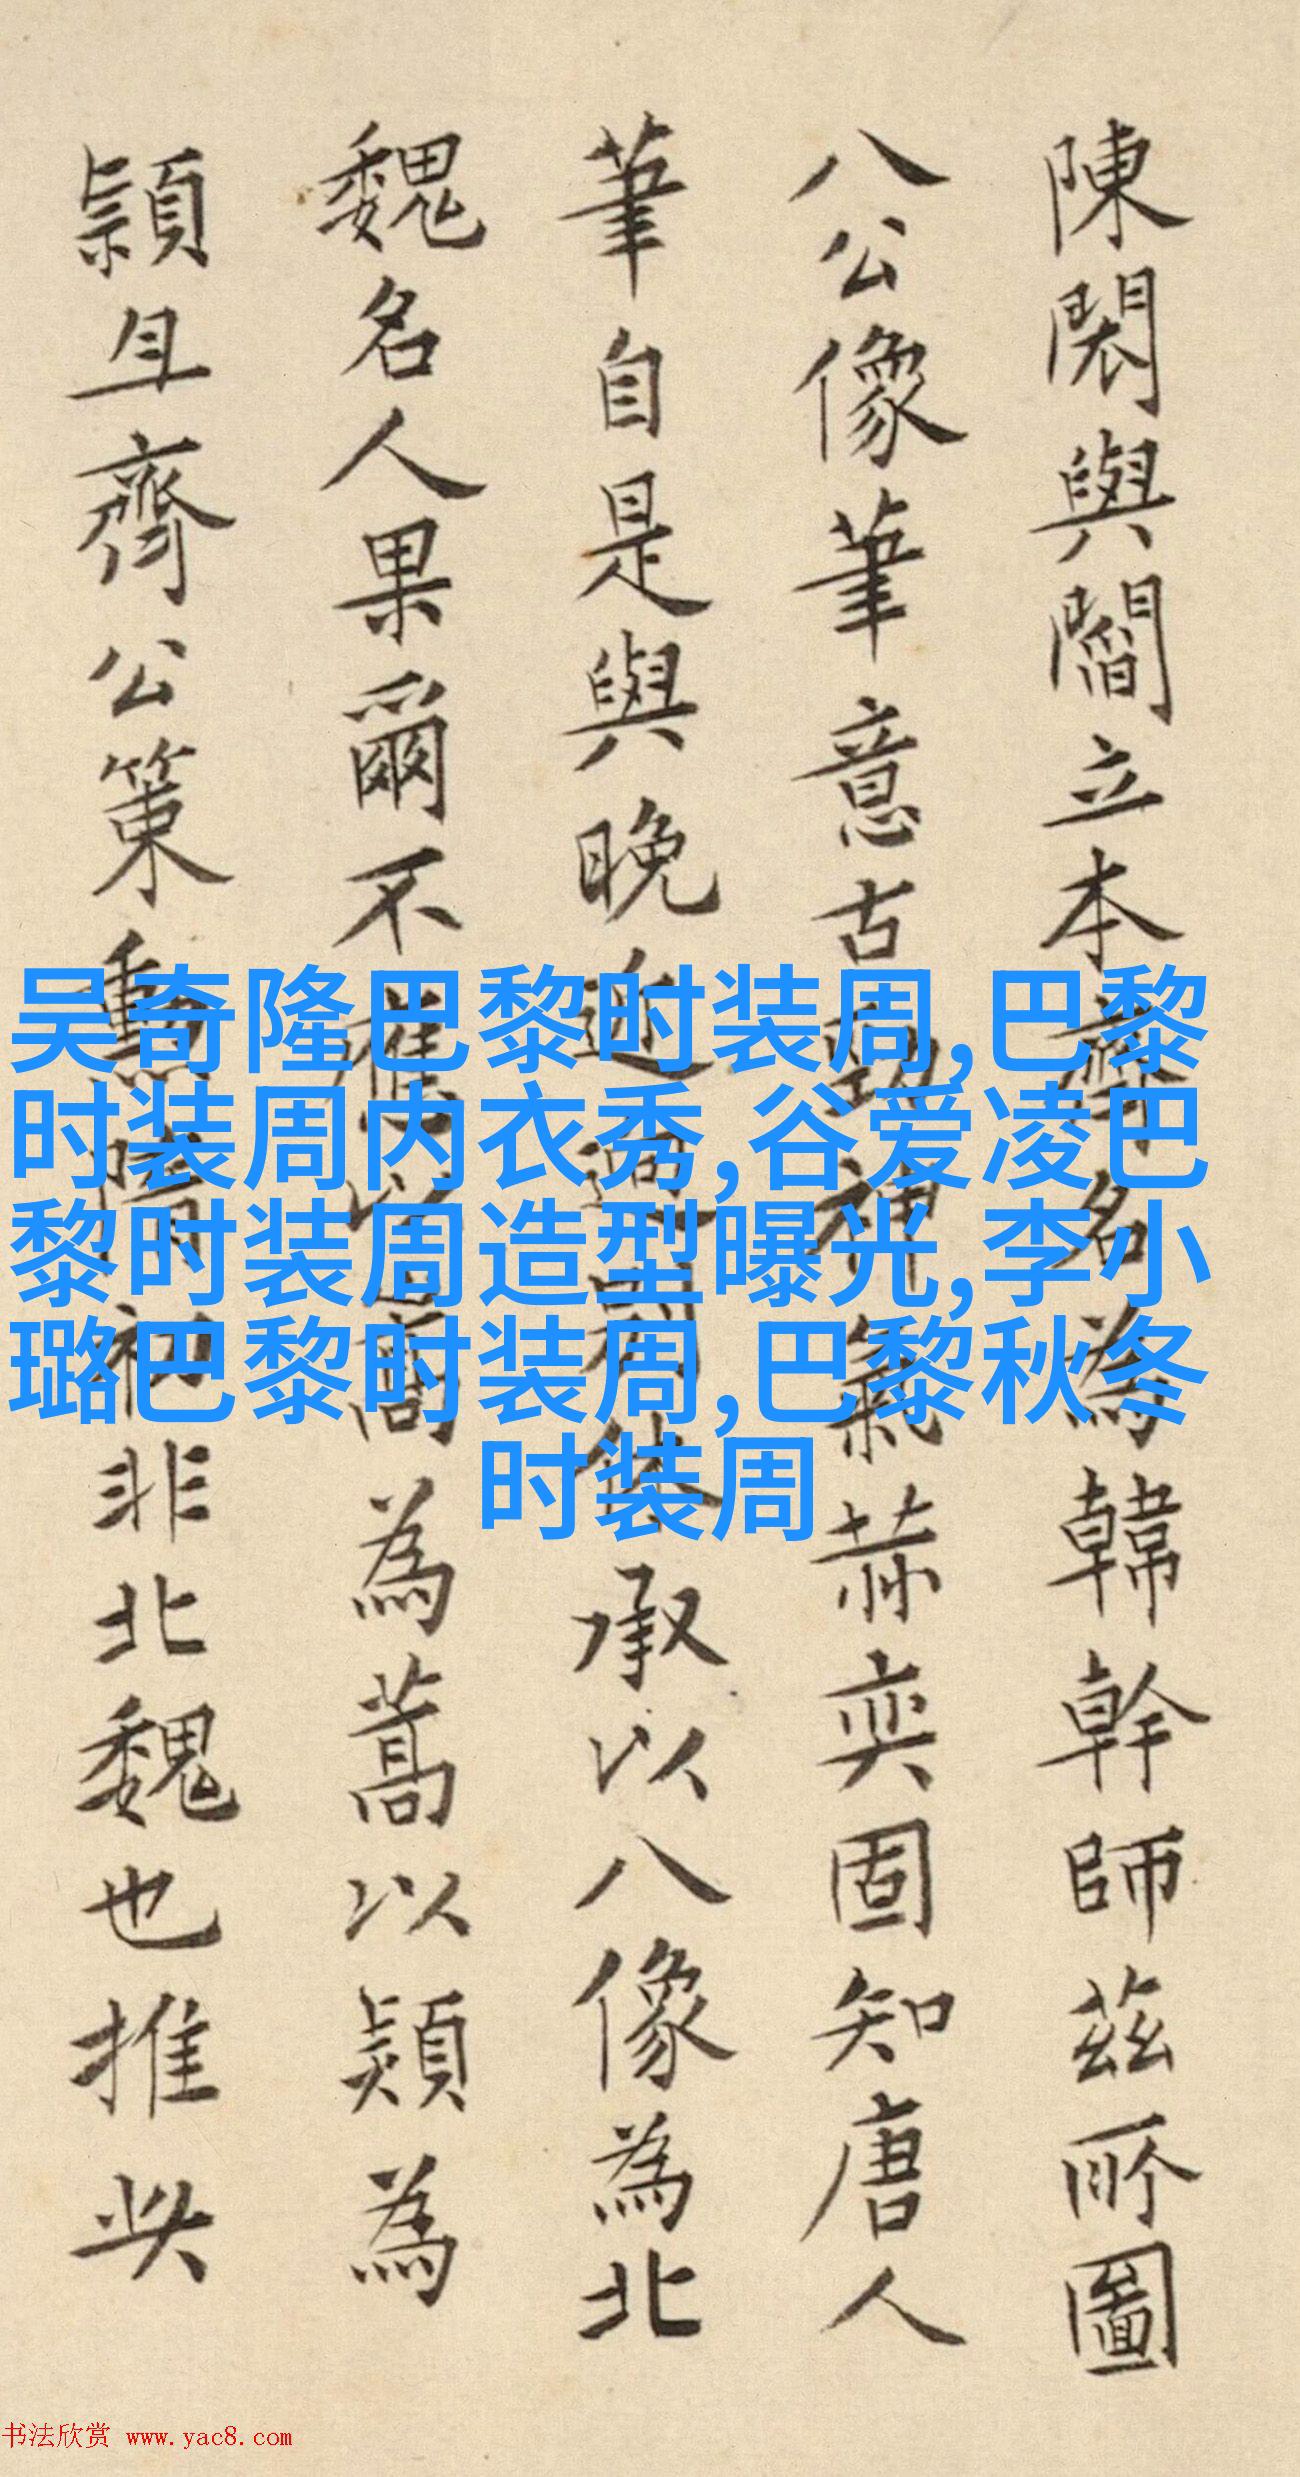 陳閎與閻立本齊名為韓幹師茲所圖
八公像筆意古勁神氣赫奕固知唐人
筆自是與晚近迥別休承以八像為北
魏名人果爾不應以高為蒿以熲為
頴且齊公策勳隋初非北魏也推此
吴奇隆巴黎时装周,巴黎
时装周内衣秀,谷爱凌巴
黎时装周造型曝光,李小
璐巴黎时装周,巴黎秋冬
时装周
书法欣赏 www.yac8.com